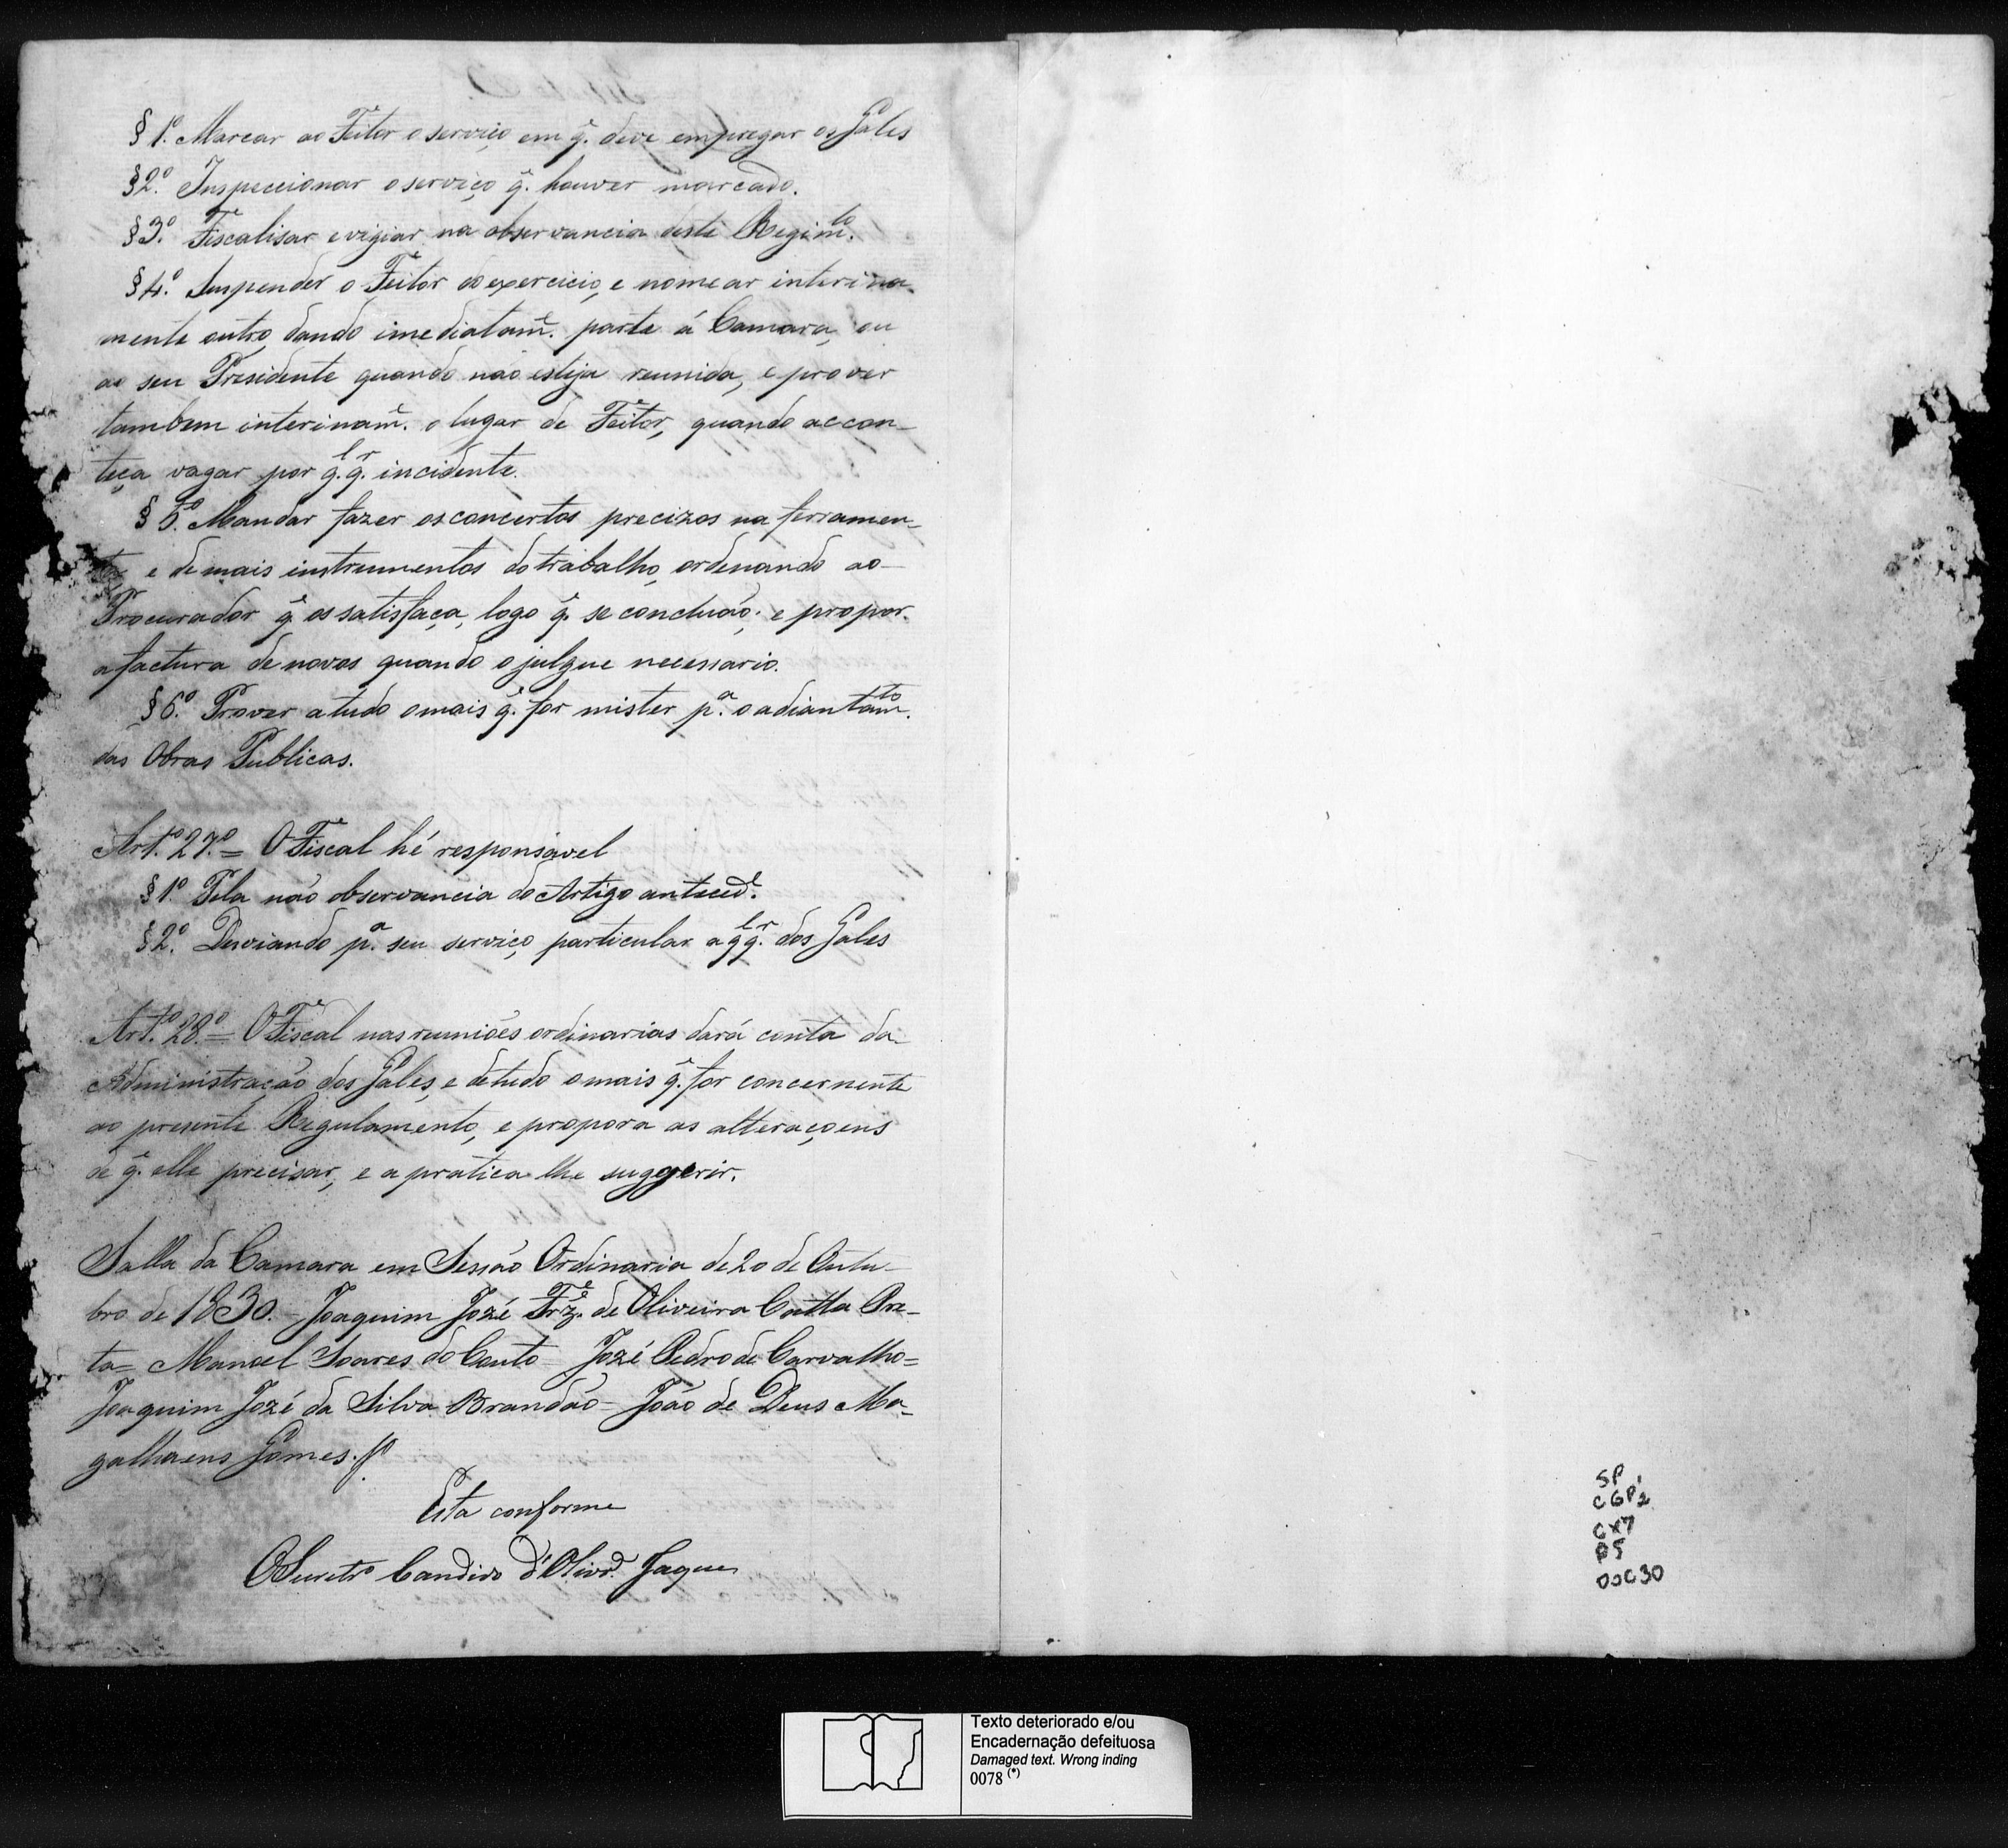 § 1.º Marcar ao Feitor o serviço em q̃. deve empregar os Gales
§ 2.º Inspeccionar o serviço q̃. houver marcado.
§ 3.º Fiscalisar e vigiar na observancia deste Regim.to
§ 4.º Suspender o Feitor do exercicio, e nomear interina-
mente outro, dando imediatam.e parte á Camara, ou
ao seu Presidente quando não esteja reunida, e prover
tambem interinam.e o lugar de Feitor, quando accon-
teça vagar por q.l q.r incidente.
§ 5.º Mandar fazer os concertos precizos na ferramen-
ta e demais instrumentos do trabalho, ordenando ao
Procurador q̃. os satisfaça, logo q̃. se concluão; e propor
a factura de novos quando o julgue necessario.
§ 6.º Prover a tudo o mais q̃. for mister p.a o adiantam.to
das Obras Publicas.
Art.º 27.º = O Fiscal hé responsavel
§ 1.º Pela não observancia do Artigo anteced.e
§ 2.º Desviando p.a seu serviço particular a q.l q.r dos Gales
Art.º 28.º = O Fiscal nas reuniões ordinarias dará conta da
Administração dos Gales, e de tudo o mais q̃. for concernente
ao presente Regulamento, e propora as alteraçoens
de q̃. elle precisar, e a pratica lhe suggerir.
Salla da Camara em Sessão Ordinaria de 20 de Outu-
bro de 1830. = Joaquim Jozé Frz.e de Oliveira Catta Pre-
ta = Manoel Soares do Couto = Jozé Pedro de Carvalho =
Joaquim Jozé da Silva Brandão = João de Deus Ma-
galhaens Gomes.
Esta conforme
O Secretr.o Candido d'Olivr.a Jaques
SP
CGP 2
CX7
P5
DOC30
Texto deteriorado e/ou
Encadernação defeituosa
Damaged text. Wrong inding
0078 (*)